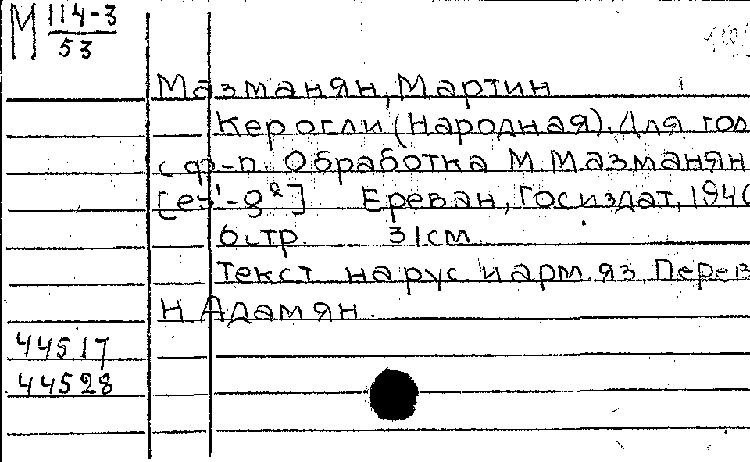 М 114-3
53
Мазманян, Мартин
Кер огли (Народная). Для гол
с ф-п. Обработка М. Мазманян
[e¹-g²] Ереван, Госиздат, 1940
6 стр. 31 см.
Текст на рус и арм. яз. Перев
Н. Адамян.
44517
44528